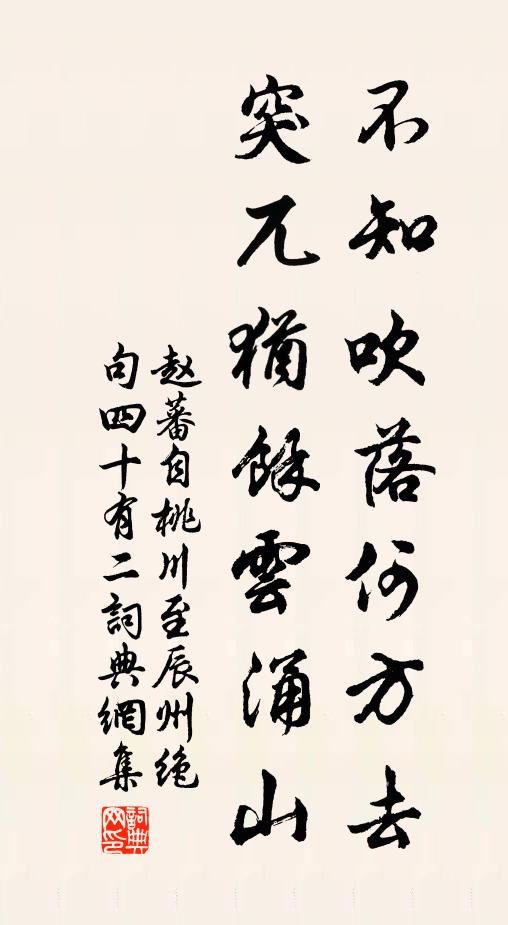 不知吹落何方去
突兀猶餘雲涌山
赵蕃自桃川至辰州绝
句四十有二詞典網集
詞典网印